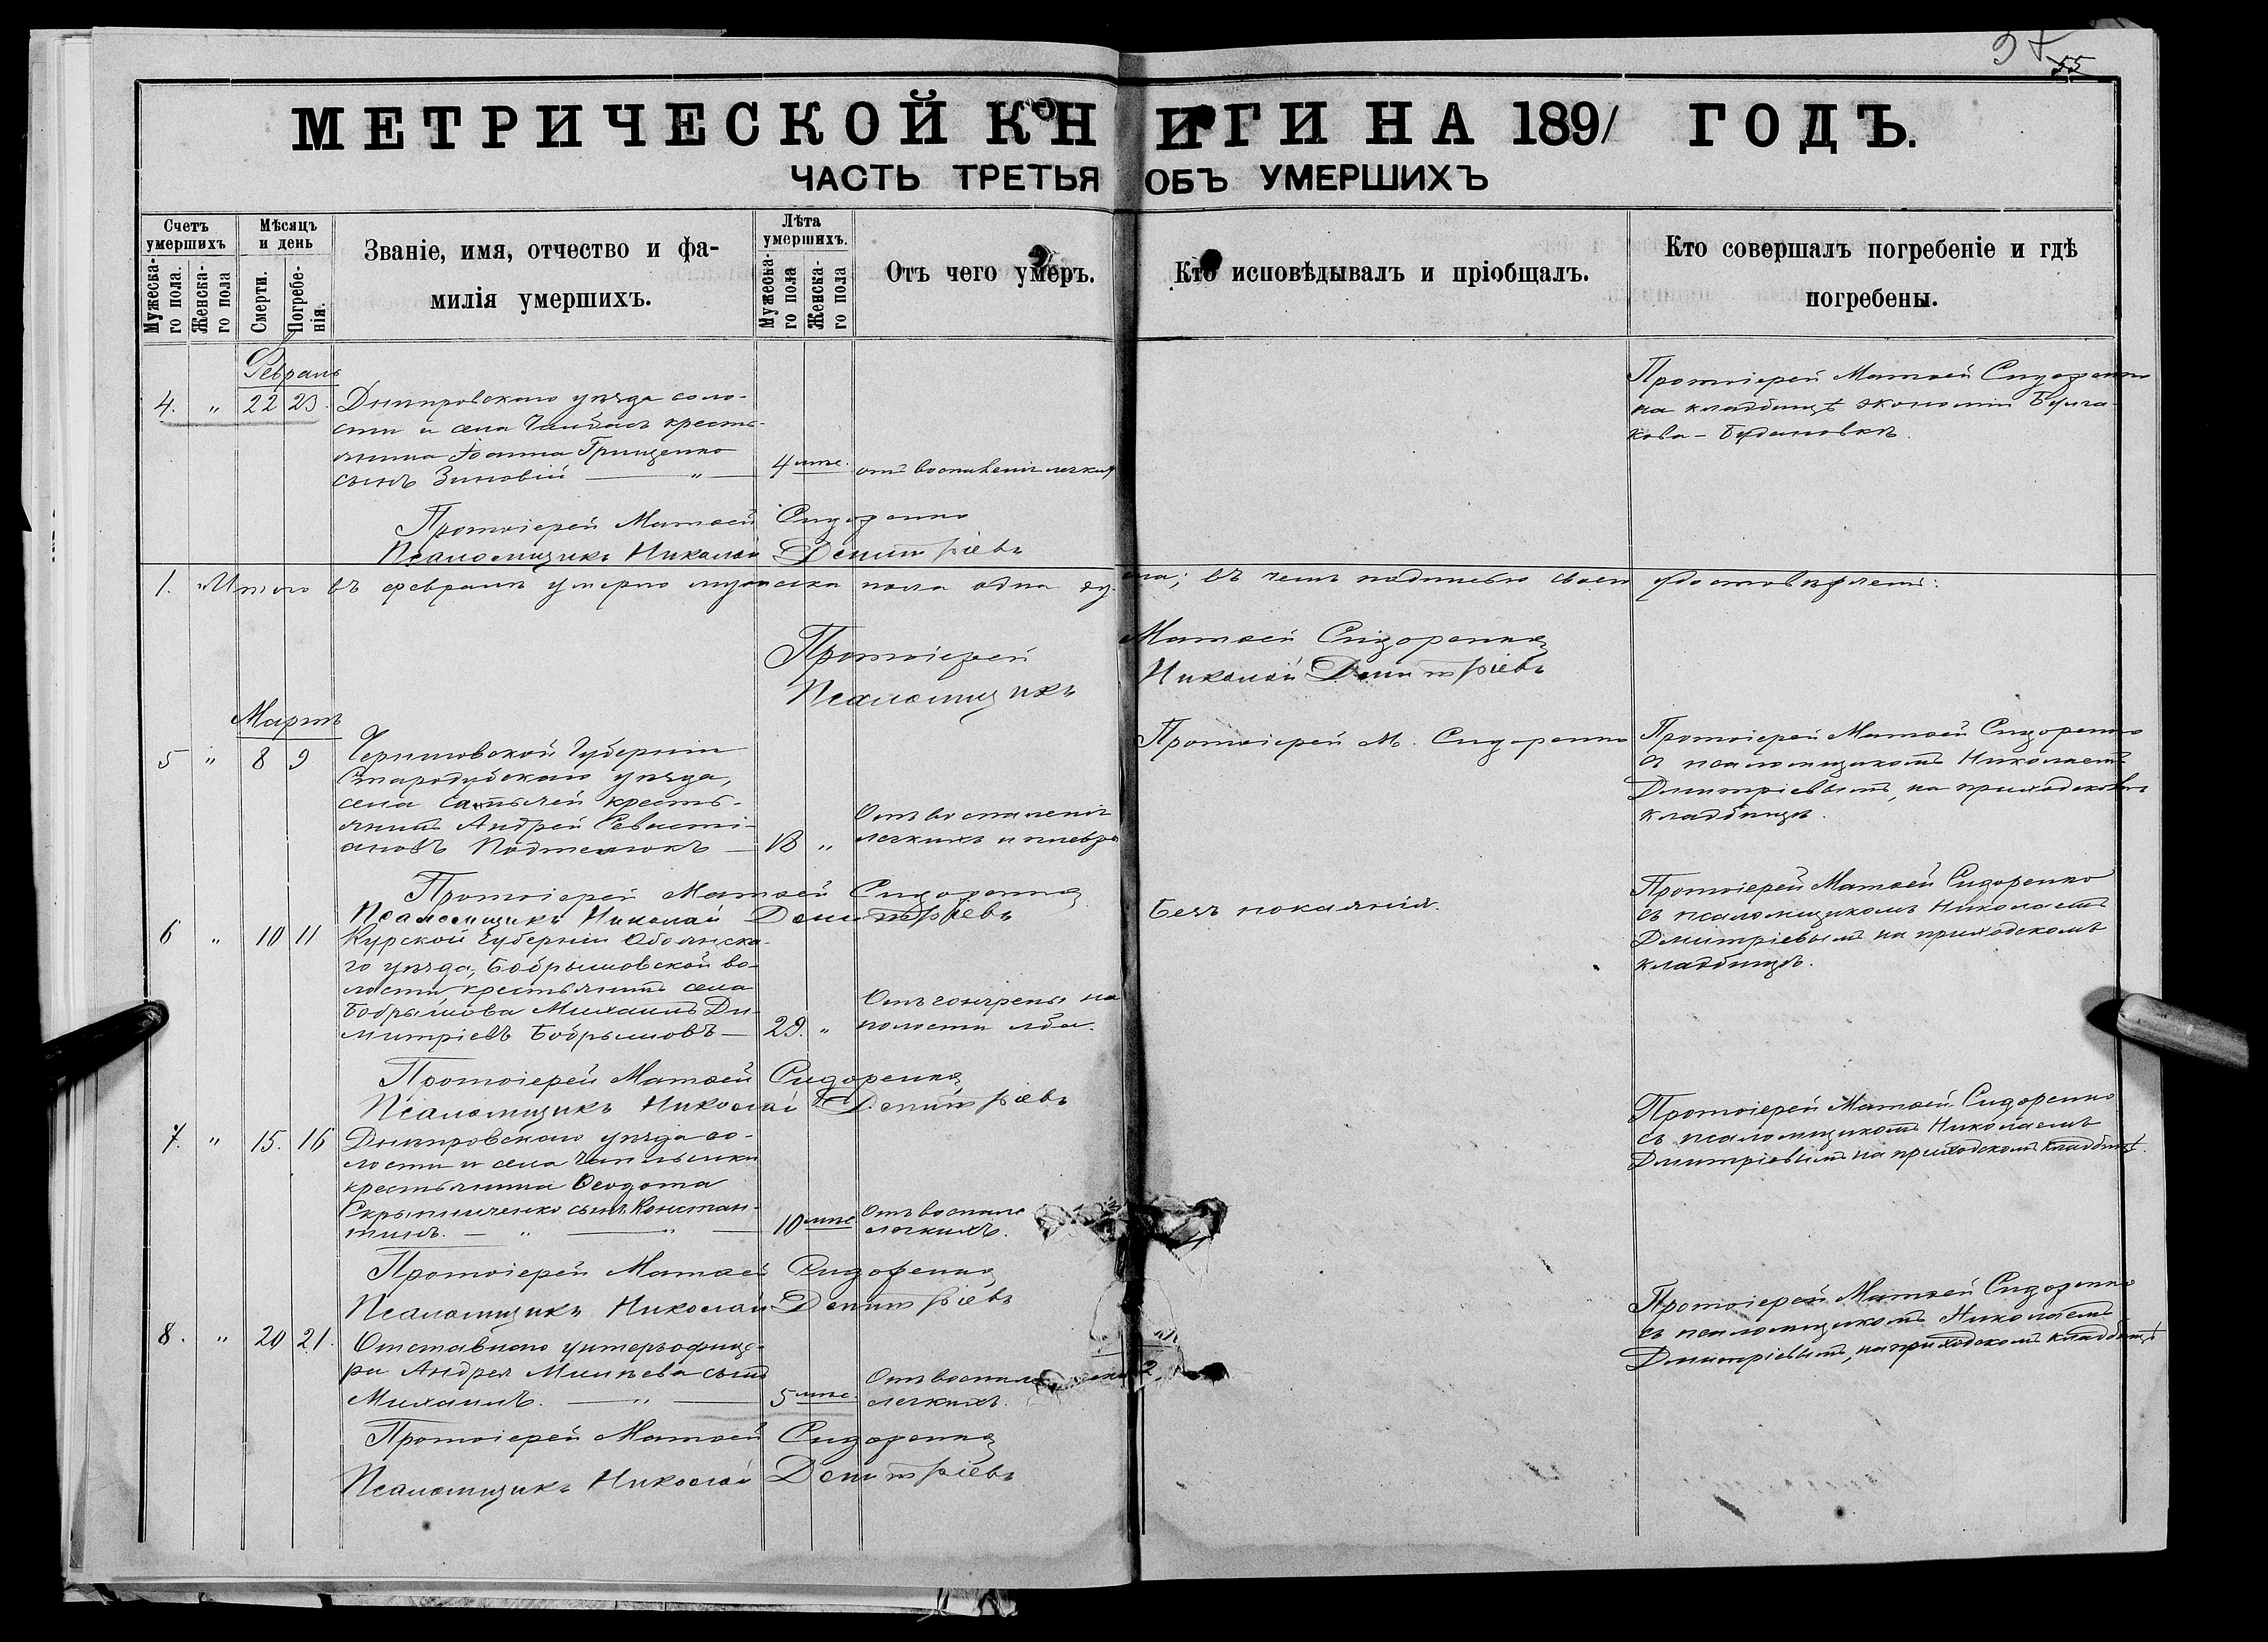 55
МЕТРИЧЕСКОЙ КНИГИ НА 1891 ГОДЪ.
ЧАСТЬ ТРЕТЬЯ ОБЪ УМЕРШИХЪ
Счетъ умершихъ
Мужеска-го пола.
Женска-го пола
Мѣсяцъ и день
Смерти.
Погребе-нія.
Званіе, имя, отчество и фа-
милія умершихъ.
Лѣта умершихъ.
Мужеска-го пола
Женска-го пола
Отъ чего умеръ.
Кто исповѣдывалъ и пріобщалъ.
Кто совершалъ погребеніе и гдѣ
погребены.
Февраль
4. " 22 23.
Днѣпровскаго уѣзда воло-
сти и села Чалбасъ кресть-
янина Іоанна Грищенко
сынъ Зиновій — " —
4 мѣс.
отъ воспаленія легкихъ
Протоіерей Матѳей Сидоренко
на кладбищѣ экономіи Булга-
кова-
Протоіерей Матѳей Сидоренко
Псаломщикъ Николай Димитріевъ
1. " Итого въ февралѣ умерло мужеска пола одна душа; въ чемъ подписью своею удостовѣряемъ:
Протоіерей Матѳей Сидоренко
Псаломщикъ Николай Димитріевъ
Мартъ
5 " 8 9
Черниговской Губерніи
Стародубскаго уѣзда,
села кресть-
янинъ Андрей Севасті-
ановъ —
18 "
Отъ воспаленія
легкихъ и плевры
Протоіерей М. Сидоренко
Протоіерей Матѳей Сидоренко
съ псаломщикомъ Николаемъ
Димитріевымъ, на приходскомъ
кладбищѣ.
Протоіерей Матѳей Сидоренко
Псаломщикъ Николай Димитріевъ
6 " 10 11
Курской Губерніи Обоянска-
го уѣзда, Бобрышовской во-
лости крестьянинъ села
Бобрышова Михаилъ Ди-
митріевъ Бобрышовъ —
29. "
Отъ гангрены на
полости лба.
Безъ покаянія.
Протоіерей Матѳей Сидоренко
съ псаломщикомъ Николаемъ
Дмитріевымъ на приходскомъ
кладбищѣ.
Протоіерей Матѳей Сидоренко
Псаломщикъ Николай Димитріевъ
7. " 15. 16
Днѣпровскаго уѣзда во-
лости и села Чаплынки
крестьянина Ѳеодота
Скрыпниченко сынъ Констан-
тинъ. — " — " —
10 мѣс
Отъ воспале
легкихъ.
Протоіерей Матѳей Сидоренко
съ псаломщикомъ Николаемъ
Дмитріевымъ на приходскомъ кладбищѣ.
Протоіерей Матѳей Сидоренко
Псаломщикъ Николай Димитріевъ
8. " 20 21.
Отставного унтеръ-офице-
ра Андрея сынъ
Михаилъ. — " —
5 мѣс.
Отъ воспале
легкихъ.
Протоіерей Матѳей Сидоренко
съ псаломщикомъ Николаемъ
Дмитріевымъ, на приходскомъ кладбищѣ
Протоіерей Матѳей Сидоренко
Псаломщикъ Николай Димитріевъ